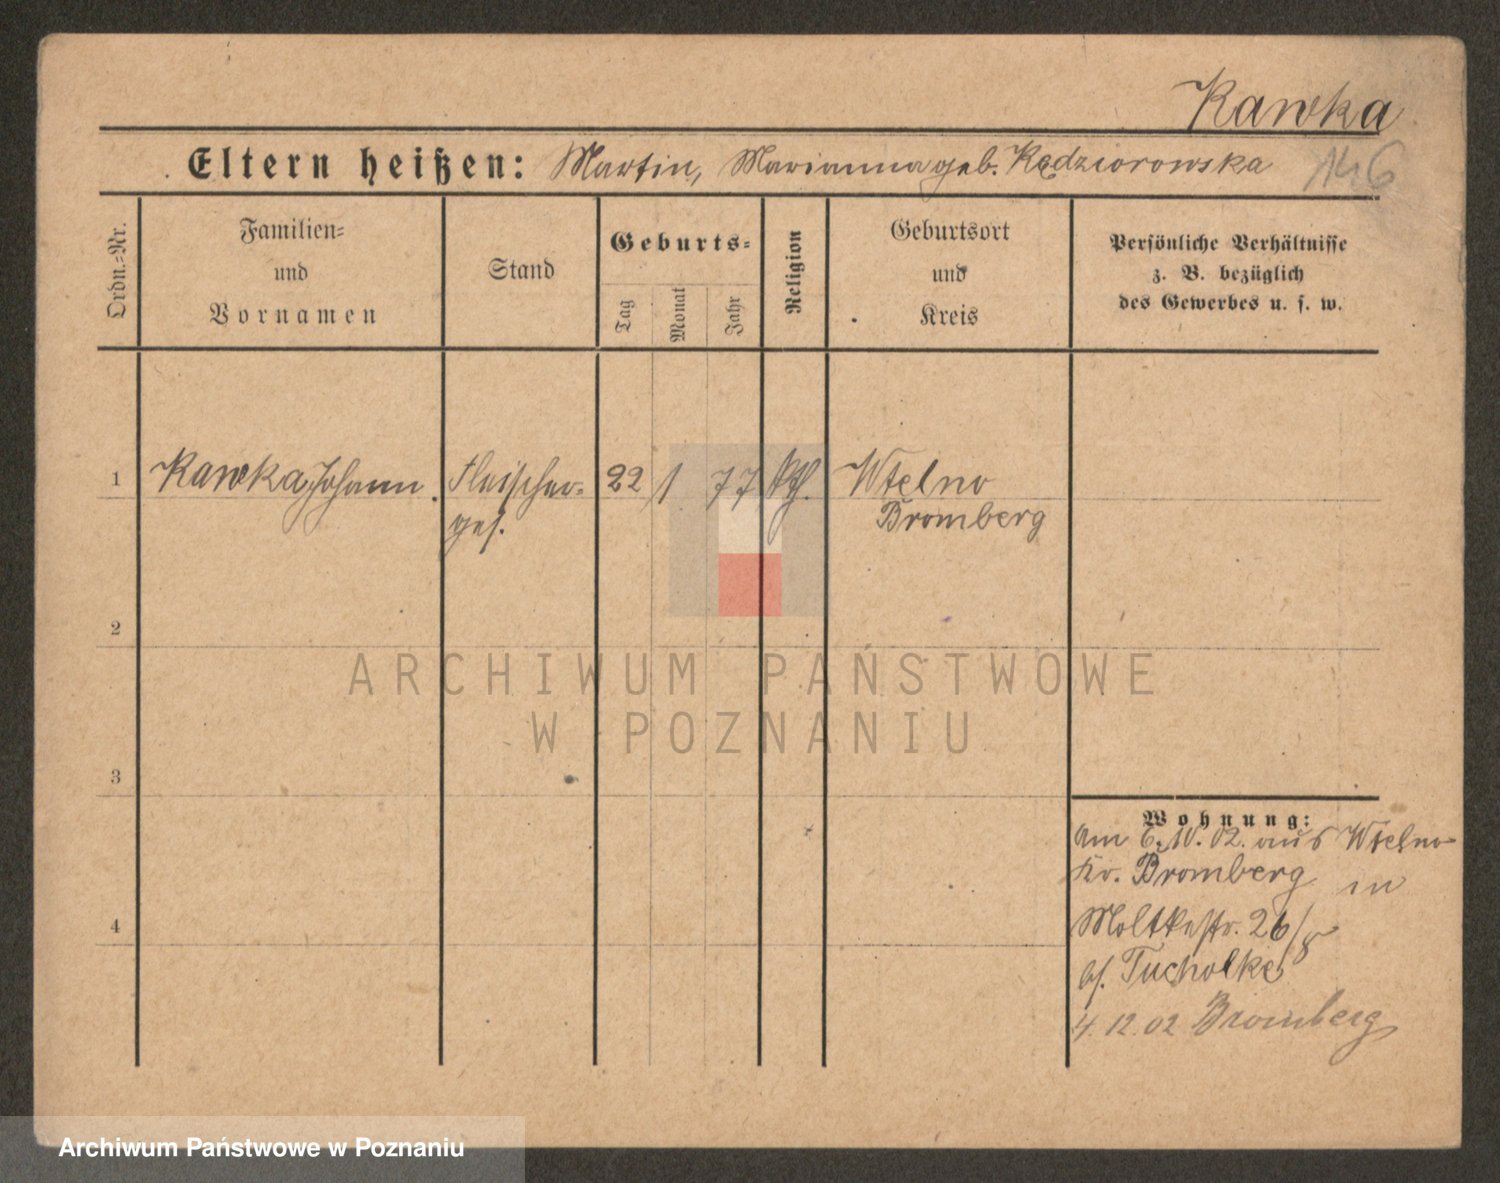 Kawka
Eltern heißen: Martin, Marianna geb. Kędziorowska
146
Ordn.-Nr.
Familien-
und
Vornamen
Stand
Geburts-
Tag
Monat
Jahr
Religion
Geburtsort
und
Kreis
Persönliche Verhältnisse
z. B. bezüglich
des Gewerbes u. s. w.
1 Kawka Johann. Fleischer- 22 1 77 kth. Wtelno
ges. Bromberg
2
ARCHIWUM PAŃSTWOWE
W POZNANIU
3
Wohnung:
Am 6.10.02. aus Wtelno
Kr. Bromberg in
4 Moltkestr. 26/8
bs. Tucholke
4.12.02 Bromberg
Archiwum Państwowe w Poznaniu